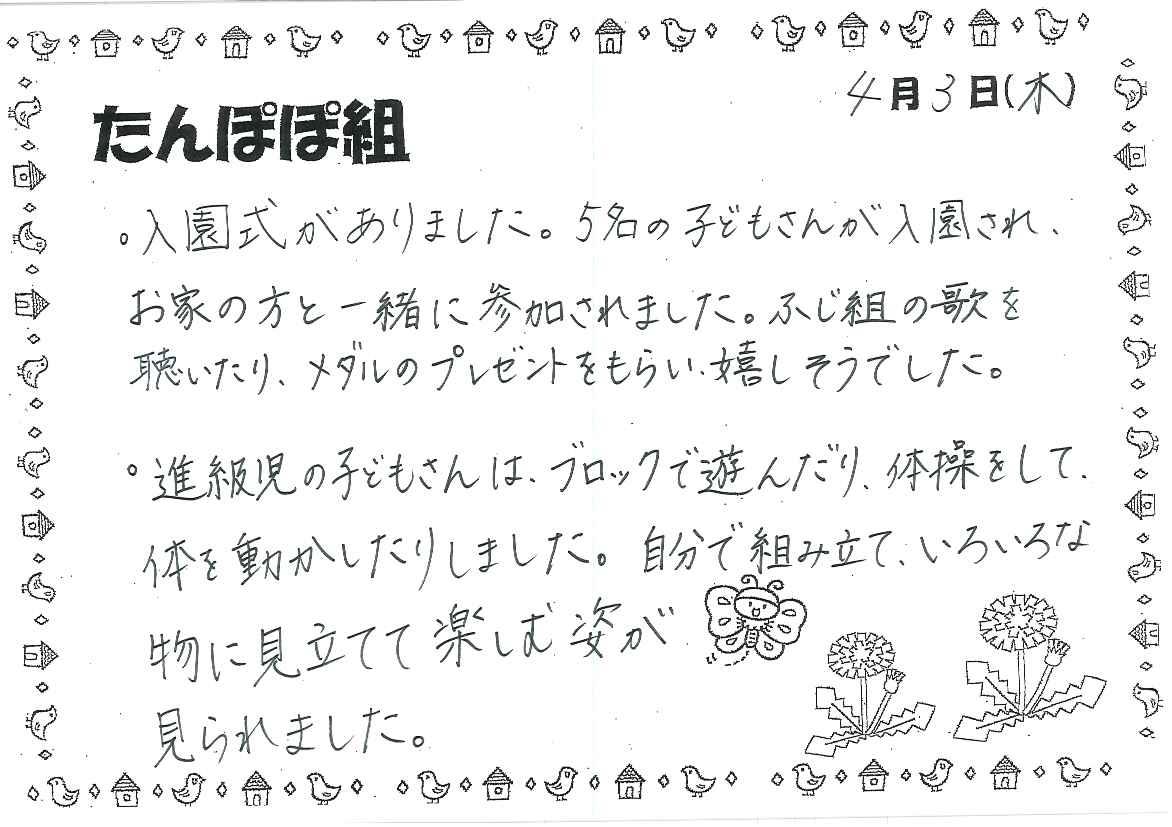 4月3日(木)
たんぽぽ組
。入園式がありました。5名の子どもさんが入園され、
お家の方と一緒に参加されました。ふじ組の歌を
聴いたり、メダルのプレゼントをもらい、嬉しそうでした。
。進級児の子どもさんは、ブロックで遊んだり、体操をして、
体を動かしたりしました。自分で組み立て、いろいろな
物に見立てて楽しむ姿が
見られました。